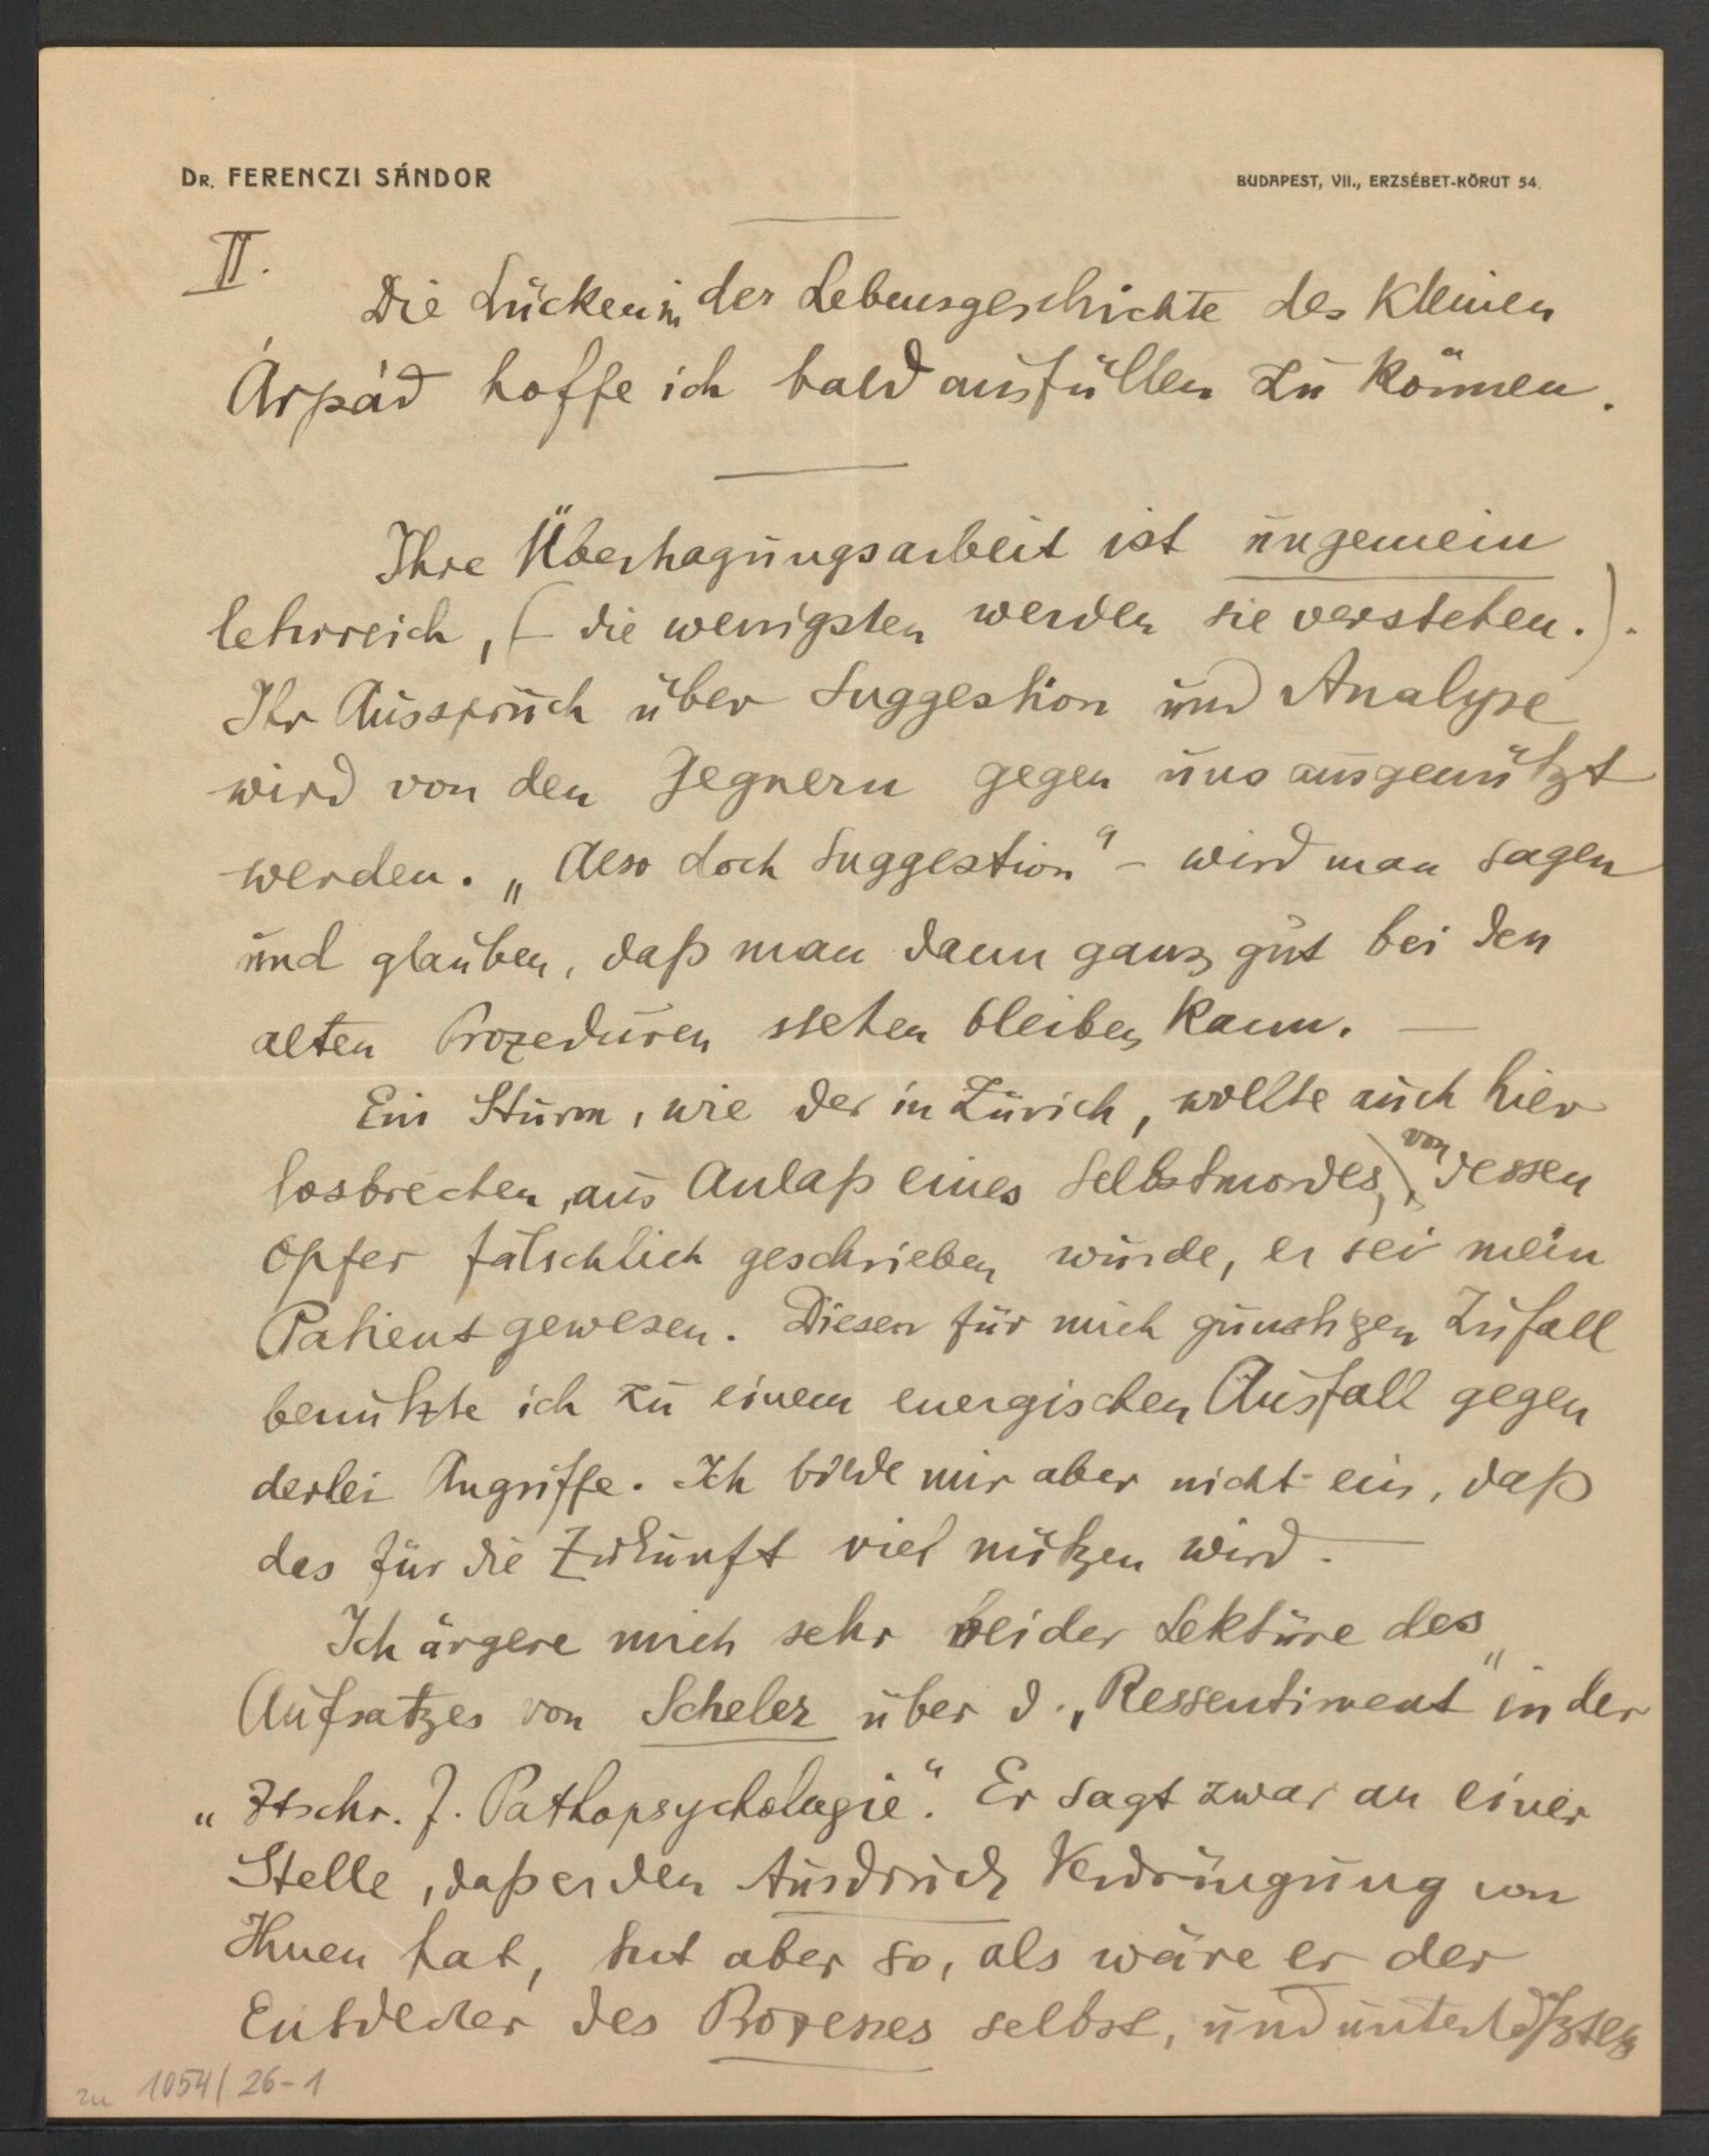 DR. FERENCZI SÁNDOR
BUDAPEST, VII., ERZSÉBET-KÖRUT 54.
II.
Die Lücken in der Lebensgeschichte des kleinen
Árpád hoffe ich bald ausfüllen zu können.
Ihre Übertragungsarbeit ist ungemein
lehrreich, (– die wenigsten werden sie verstehen.).
Ihr Ausspruch über Suggestion und Analyse
wird von den Gegnern gegen uns ausgenützt
werden. „Also doch Suggestion“ – wird man sagen
und glauben, daß man dann ganz gut bei den
alten Prozeduren stehen bleiben kann. —
Ein Sturm, wie der in Zürich, wollte auch hier
losbrechen, aus Anlaß eines Selbstmordes, von dessen
Opfer fälschlich geschrieben wurde, er sei mein
Patient gewesen. Diesen für mich günstigen Zufall
benützte ich zu einem energischen Ausfall gegen
derlei Angriffe. Ich bilde mir aber nicht ein, daß
das für die Zukunft viel nützen wird. —
Ich ärgere mich sehr bei der Lektüre des
Aufsatzes von Scheler über d. „Ressentiment“ in der
„Ztschr. f. Pathopsychologie“. Er sagt zwar an einer
Stelle, daß er den Ausdruck Verdrängung von
Ihnen hat, tut aber so, als wäre er der
Entdecker des Prozesses selbst, und
zu 1054/26-1